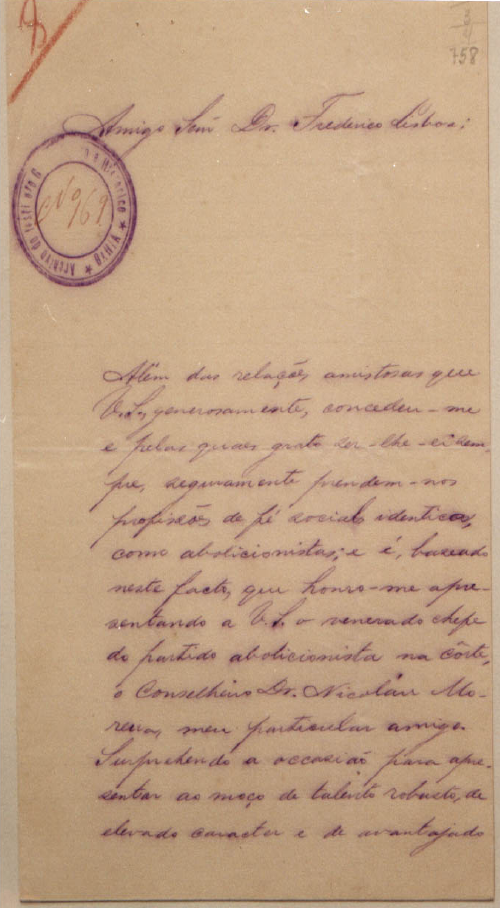 758
Amigo Snr. Dr. Frederico Lisboa;
Nº 169
Archivo do Instituto
Historico
Além das relações amistosas que
V. S., generosamente, concedeu-me
e pelas quaes grato ser-lhe-ei sem-
pre, seguramente prendem-nos
profissões de fé sociaes identicas,
como abolicionistas; e é, baseado
neste facto, que honro-me apre-
sentando a V. S. o venerado chefe
do partido abolicionista na côrte,
o Conselheiro Dr. Nicoláu Mo-
reira, meu particular amigo.
Surprehendo a occasião para apre-
sentar ao moço de talento robusto, de
elevado caracter e de avantajado